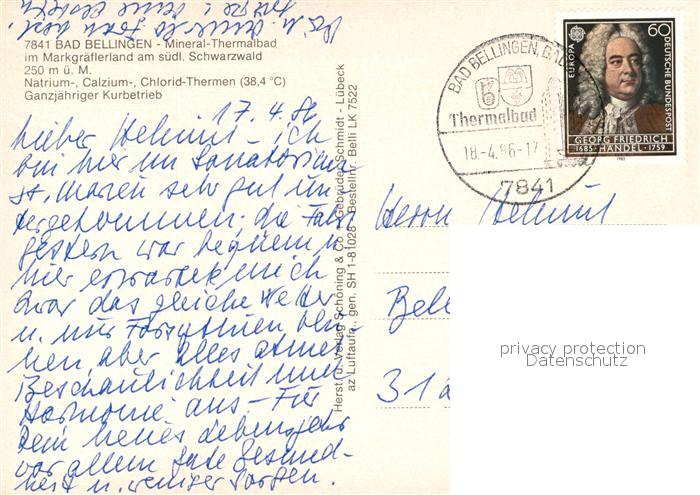 7841 BAD BELLINGEN - Mineral-Thermalbad
im Markgräflerland am südl. Schwarzwald
250 m ü. M.
Natrium-, Calzium-, Chlorid-Thermen (38,4 °C)
Ganzjähriger Kurbetrieb
17.4.86
Lieber Helmut - ich
bin hier im Sanatorium
St. Marien sehr gut un
tergekommen; die Fahrt
gestern war bequem u.
hier erwartete mich
zwar das gleiche Wetter
u. nur Forsythien blü
hen, aber alles atmet
Beschaulichkeit und
Harmonie aus - Für
Dein neues Lebensjahr
vor allem gute Gesund-
heit u. weniger Sorgen.
Herst. u. Verlag Schöning & Co + Gebrüder Schmidt - Lübeck
az Luftaufn., gen. SH 1-81028 - Bestellnr. Belli LK 7522
BAD BELLINGEN, BA
Thermalbad
18.-4.86-17
7841
EUROPA
60
DEUTSCHE BUNDESPOST
GEORG FRIEDRICH
1685 HÄNDEL 1759
1985
Herrn Helmut
Bell
31
privacy protection
Datenschutz